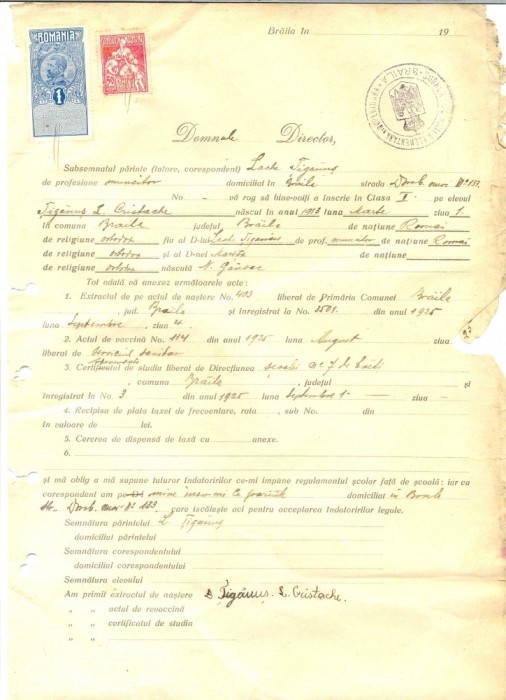 Brăila în 19
ROMÂNIA
1
BRĂILA
Domnule Director,
Subsemnatul părinte (tutore, corespondent) Lache Țigănuș
de profesiune muncitor domiciliat în Brăila strada
No. – vă rog să bine-voiți a înscrie în Clasa I. pe elevul
Țigănuș L. Cristache născut în anul 1913 luna Martie ziua 1.
în comuna Braila județul Brăila de națiune Roman
de religiune ortodox fiu al D-lui Țigănuș de prof. muncitor de națiune Roman
de religiune ortodox și al D-nei de națiune
de religiune ortodox născută N.
Tot odată să anexez următoarele acte:
1. Extractul de pe actul de naștere No. 403 liberat de Primăria Comunei Brăila
, jud. Braila și înregistrat la No. 3501. din anul 1925
luna Septembrie, ziua 4.
2. Actul de vaccină No. 114 din anul 1925 luna August ziua
liberat de serviciul sanitar
3. Certificatul de studiu liberat de Direcțiunea școalei No 7 de băeți
, comuna Brăila, județul și
înregistrat la No. 3 din anul 1925 luna Septembrie 1 – ziua –
4. Recipisa de plata taxei de frecventare, rata , sub No. din
în valoare de lei.
5. Cererea de dispensă de taxă cu anexe.
6.
și mă oblig a mă supune tuturor îndatoririlor ce-mi impune regulamentul școlar față de școală: iar ca
corespondent am pe domiciliat în
str. care iscălește aci pentru acceptarea îndatoririlor legale.
Semnătura părintelui L. Țigănuș
domiciliul părintelui
Semnătura corespondentului
domiciliul corespondentului
Semnătura elevului
Am primit extractul de naștere Țigănuș. L. Cristache.
„ „ actul de revaccină
„ „ certificatul de studiu
„ „